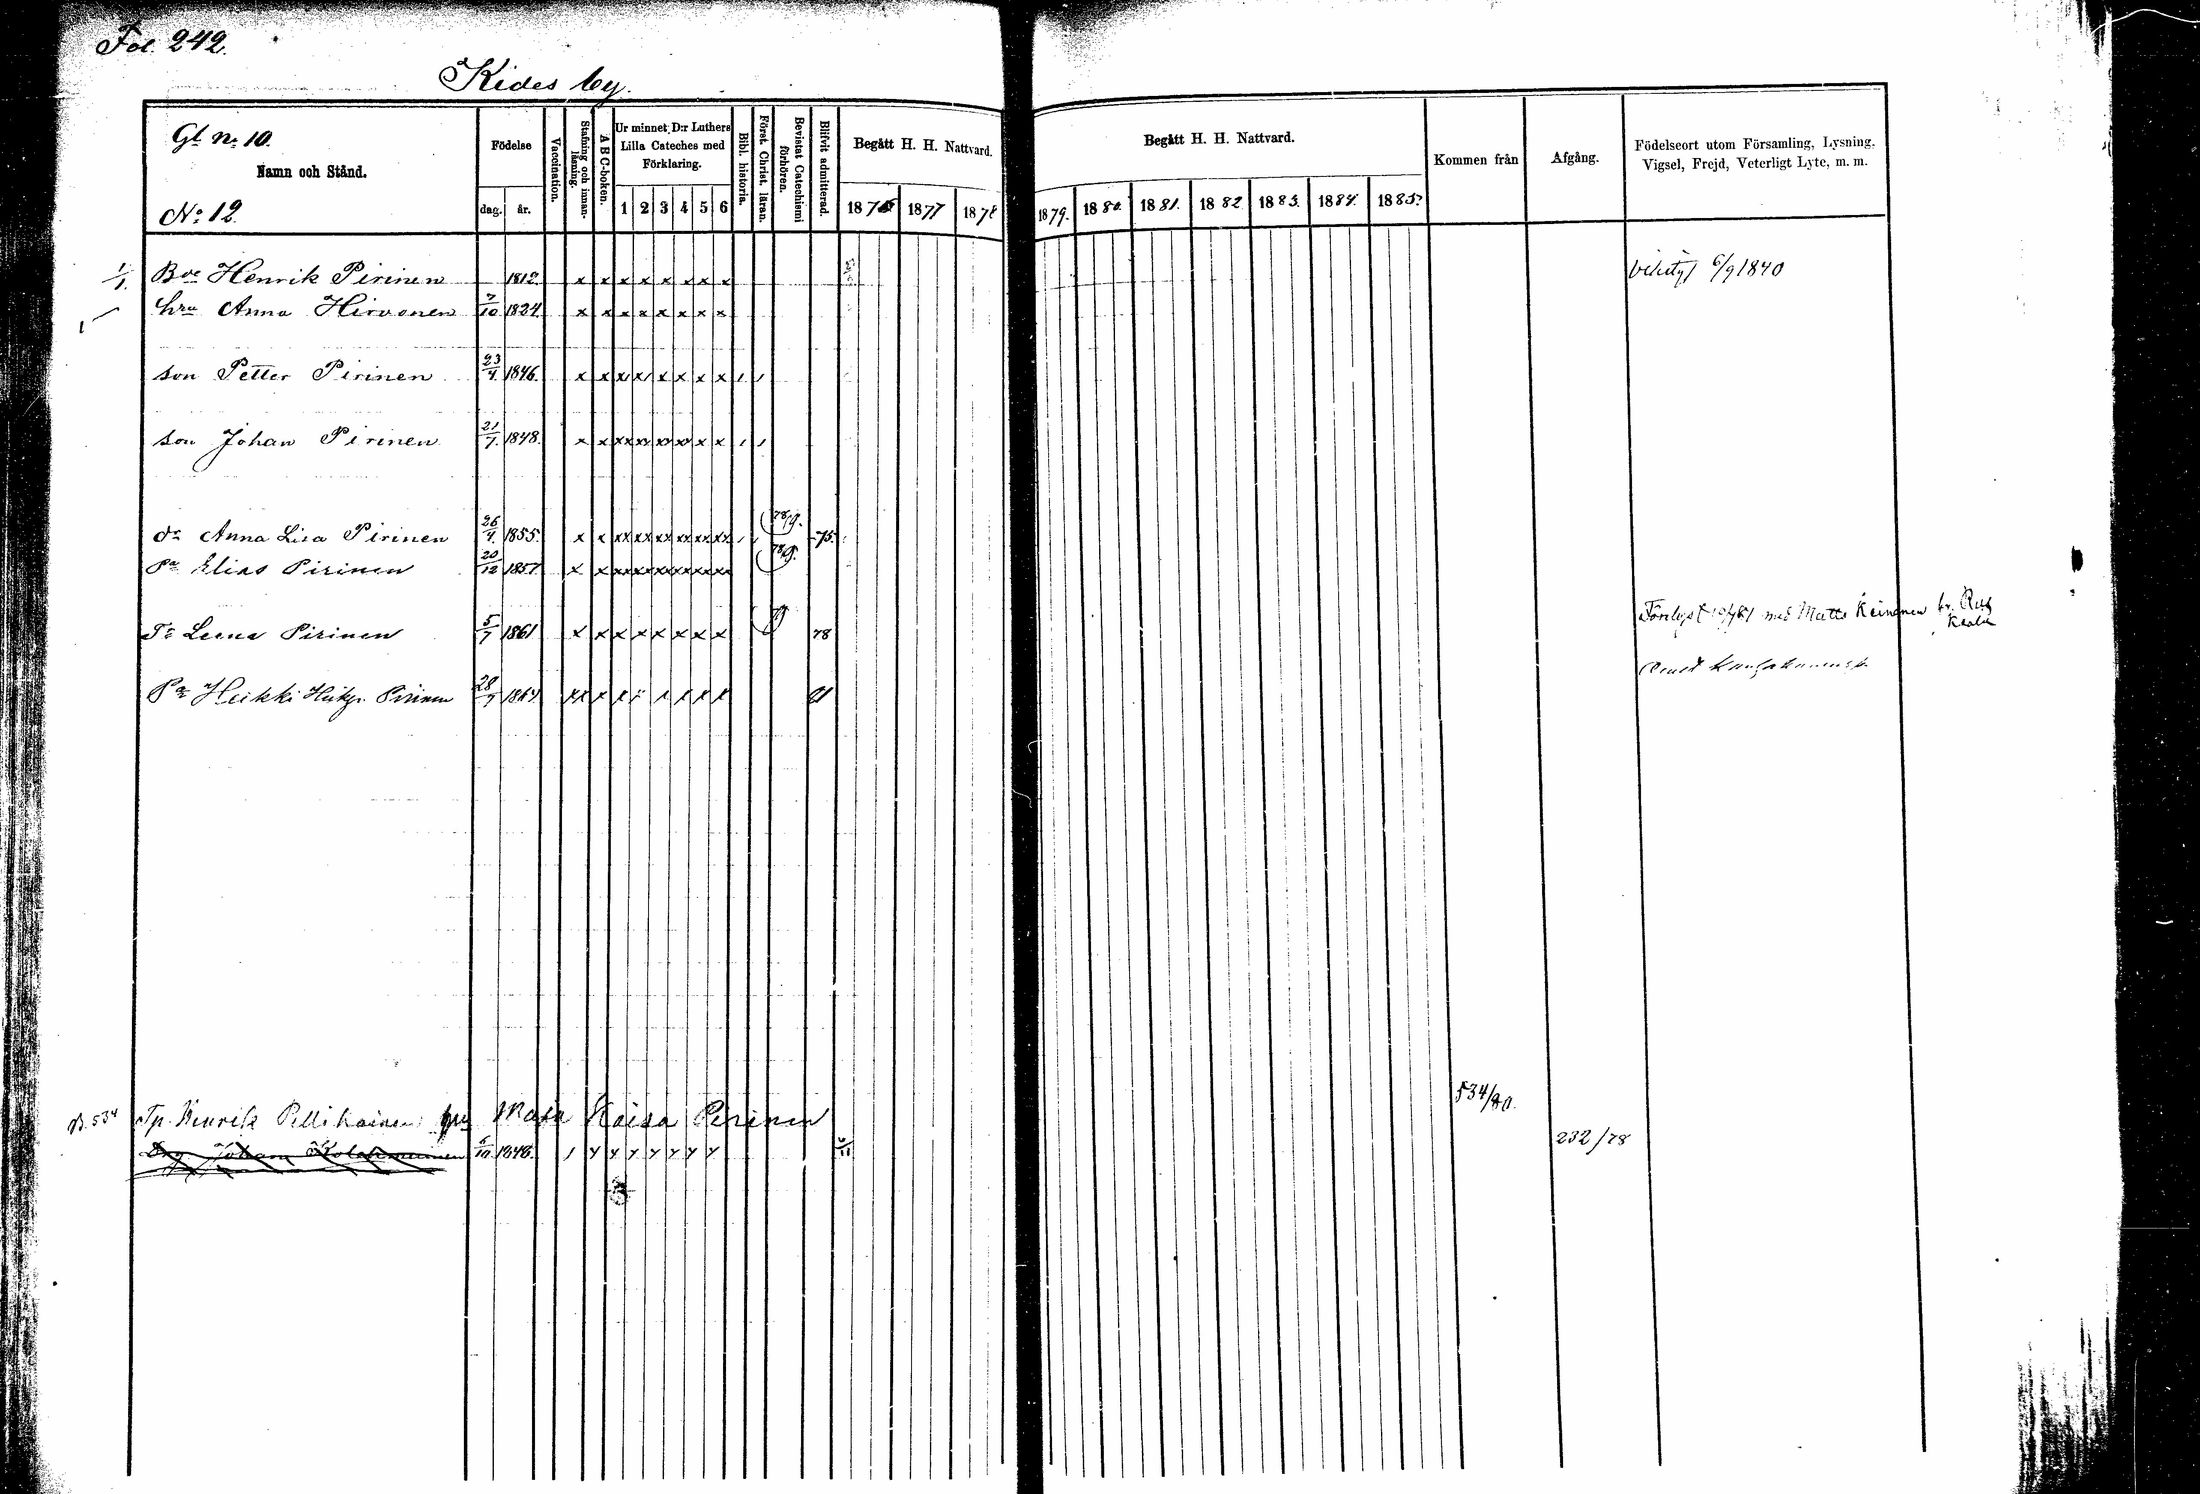 Fol. 242.
Kides by.
Gl. No 10.
Namn och Stånd.
No 12.
Födelse
dag. år.
Vaccination.
Stafning och innanläsning.
A B C-boken.
Ur minnet D:r Luthers Lilla Cateches med Förklaring.
1 2 3 4 5 6
Bibl. historia.
Först. Christ. läran.
Bevistat Catechismi förhören.
Blifvit admitterad.
Begått H. H. Nattvard.
1876 1877 1878
Begått H. H. Nattvard.
1879. 1880. 1881. 1882 1883. 1884. 1885.
Kommen från
Afgång.
Födelseort utom Församling, Lysning. Vigsel, Frejd, Veterligt Lyte, m. m.
1/1. Bde Henrik Pirinen 1812. x x x x x x x x 6/9 1840
hru Anna Hirvonen 7/10 1824. x x x x x x x x
son Petter Pirinen 23/4. 1846. x x x x x x x x
son Johan Pirinen 21/7. 1848. x x xx xx xx xx x x
dr Anna Lisa Pirinen 26/4. 1855. x x xx xx xx xx xx xx 78/9. 75.
Pa Elias Pirinen 20/12 1857 x x xx xx xx xx xx xx 78/9.
Tr Leena Pirinen 5/7 1861 x x x x x x x x 79 78 med Matts Keinonen
Pa Heikki Heikp. Pirinen 28/7 1864. xx x x x x x x x 81
B. 534 Tp. Henrik Pellikainen hru Maja Kaisa Pirinen 534/80.
Drg Johan Kolehmainen 5/10 1848. 232/78